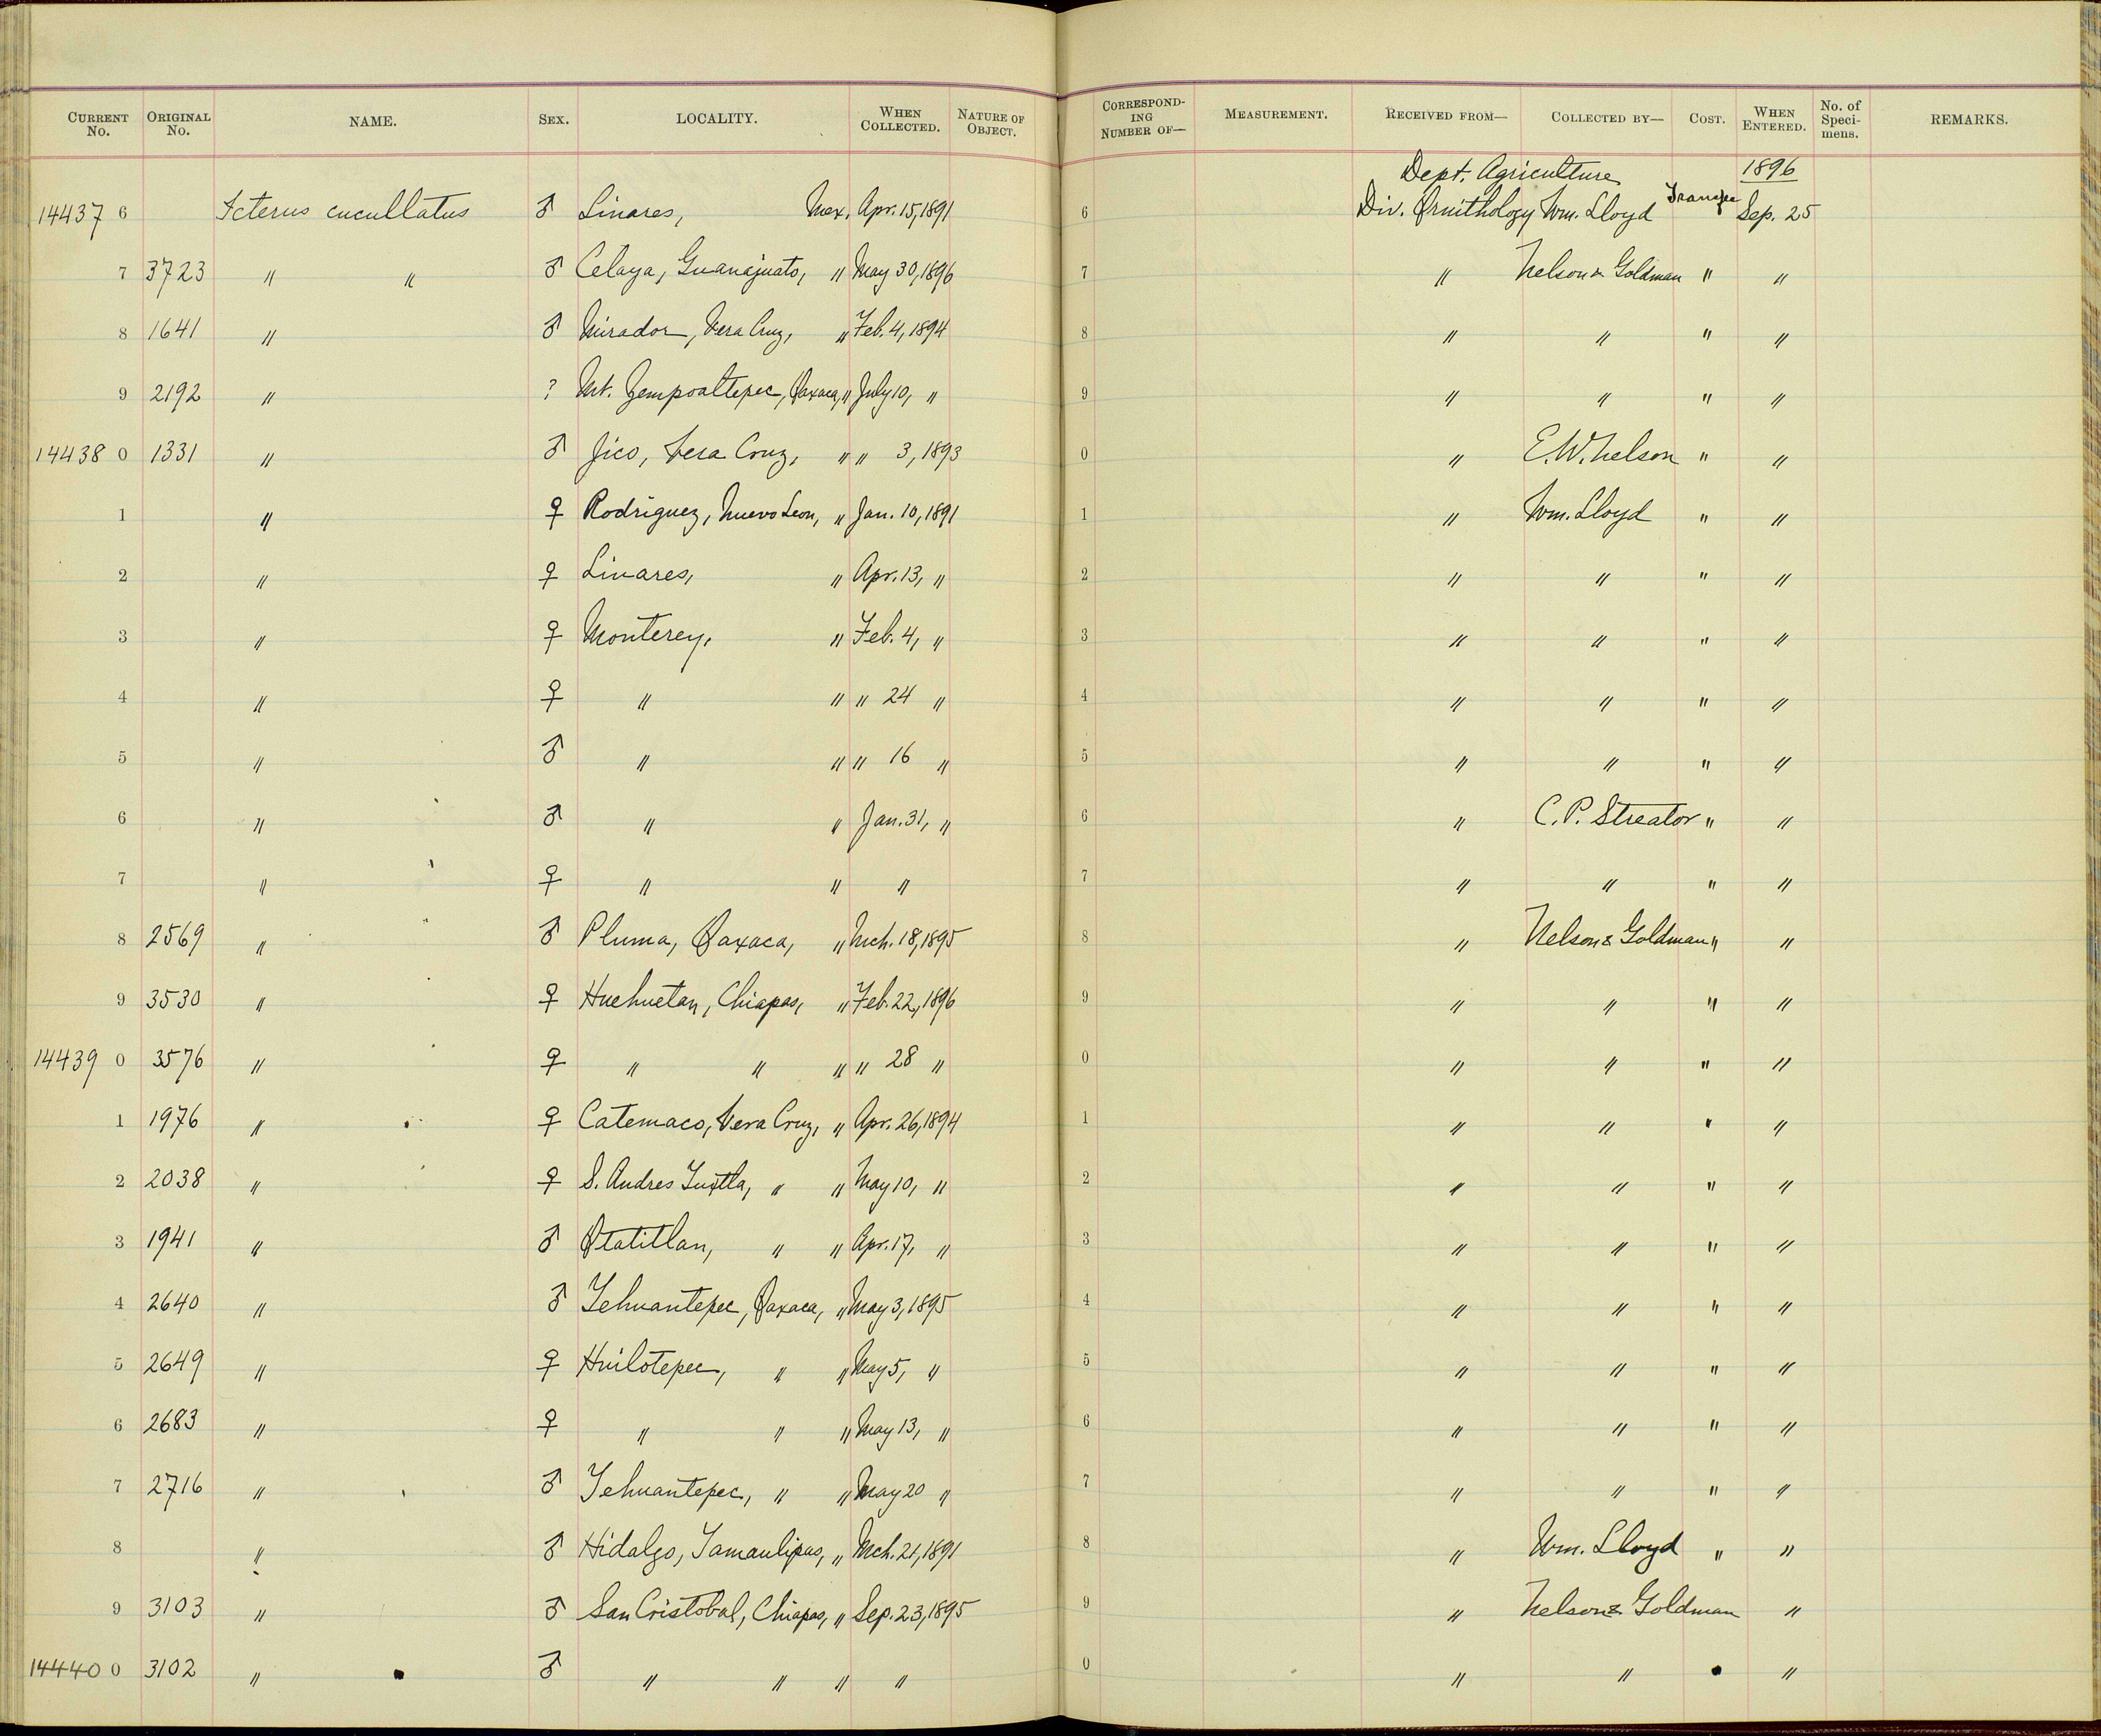 CURRENT No. ORIGINAL No. NAME. SEX. LOCALITY. WHEN COLLECTED. NATURE OF OBJECT. CORRESPOND-ING NUMBER OF— MEASUREMENT. RECEIVED FROM— COLLECTED BY— COST. WHEN ENTERED. No. of Speci-mens. REMARKS.
Dept. Agriculture 1896
14437 6 Icterus cucullatus ♂ Linares, Mex. Apr. 15, 1891 6 Div. Ornithology Wm. Lloyd Transfer Sep. 25
7 3723 " " ♂ Celaya, Guanajuato, " May 30, 1896 7 " Nelson & Goldman " "
8 1641 " ♂ Mirador, Vera Cruz, " Feb. 4, 1894 8 " " " "
9 2192 " ? Mt. Zempoaltepec, Oaxaca, " July 10, " 9 " " " "
14438 0 1331 " ♂ Jico, Vera Cruz, " " 3, 1893 0 " E. W. Nelson " "
1 " ♀ Rodriguez, Nuevo Leon, " Jan. 10, 1891 1 " Wm. Lloyd " "
2 " ♀ Linares, " Apr. 13, " 2 " " " "
3 " ♀ Monterey, " Feb. 4, " 3 " " " "
4 " ♀ " " " 24 " 4 " " " "
5 " ♂ " " " 16 " 5 " " " "
6 " ♂ " " Jan. 31, " 6 " C. P. Streator " "
7 " ♀ " " " 7 " " " "
8 2569 " ♂ Pluma, Oaxaca, " Mch. 18, 1895 8 " Nelson & Goldman " "
9 3530 " ♀ Huehuetan, Chiapas, " Feb. 22, 1896 9 " " " "
14439 0 3576 " ♀ " " " " 28 " 0 " " " "
1 1976 " ♀ Catemaco, Vera Cruz, " Apr. 26, 1894 1 " " " "
2 2038 " ♀ S. Andres Tuxtla, " " May 10, " 2 " " " "
3 1941 " ♂ Otatitlan, " " Apr. 17, " 3 " " " "
4 2640 " ♂ Tehuantepec, Oaxaca, " May 3, 1895 4 " " " "
5 2649 " ♀ Huilotepec, " " May 5, " 5 " " " "
6 2683 " ♀ " " " May 13, " 6 " " " "
7 2716 " ♂ Tehuantepec, " " May 20 " 7 " " " "
8 " ♂ Hidalgo, Tamaulipas, " Mch. 21, 1891 8 " Wm. Lloyd " "
9 3103 " ♂ San Cristobal, Chiapas, " Sep. 23, 1895 9 " Nelson & Goldman "
14440 0 3102 " ♂ " " " " 0 " " "